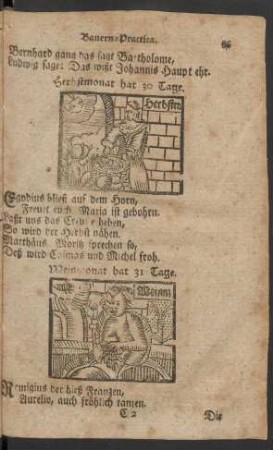 Bauern-Practica.
Bernhard gang das sagt Bartholome,
Ludwig sage: Das wißt Johannis Haupt ehr.
Herbstmonat hat 30 Tage.
Herbstm
Egydius bließ auf dem Horn,
Freuet euch Maria ist gebohrn.
Laßt uns das Creutz heben,
So wird der Herbst nähen.
Matthäus, Moritz sprechen so,
Deß wird Cosmas und Michel froh.
Weinmonat hat 31 Tage.
Weinm
Remigius der hieß Franzen,
Aurelio, auch fröhlich tantzen.
C 2 Die